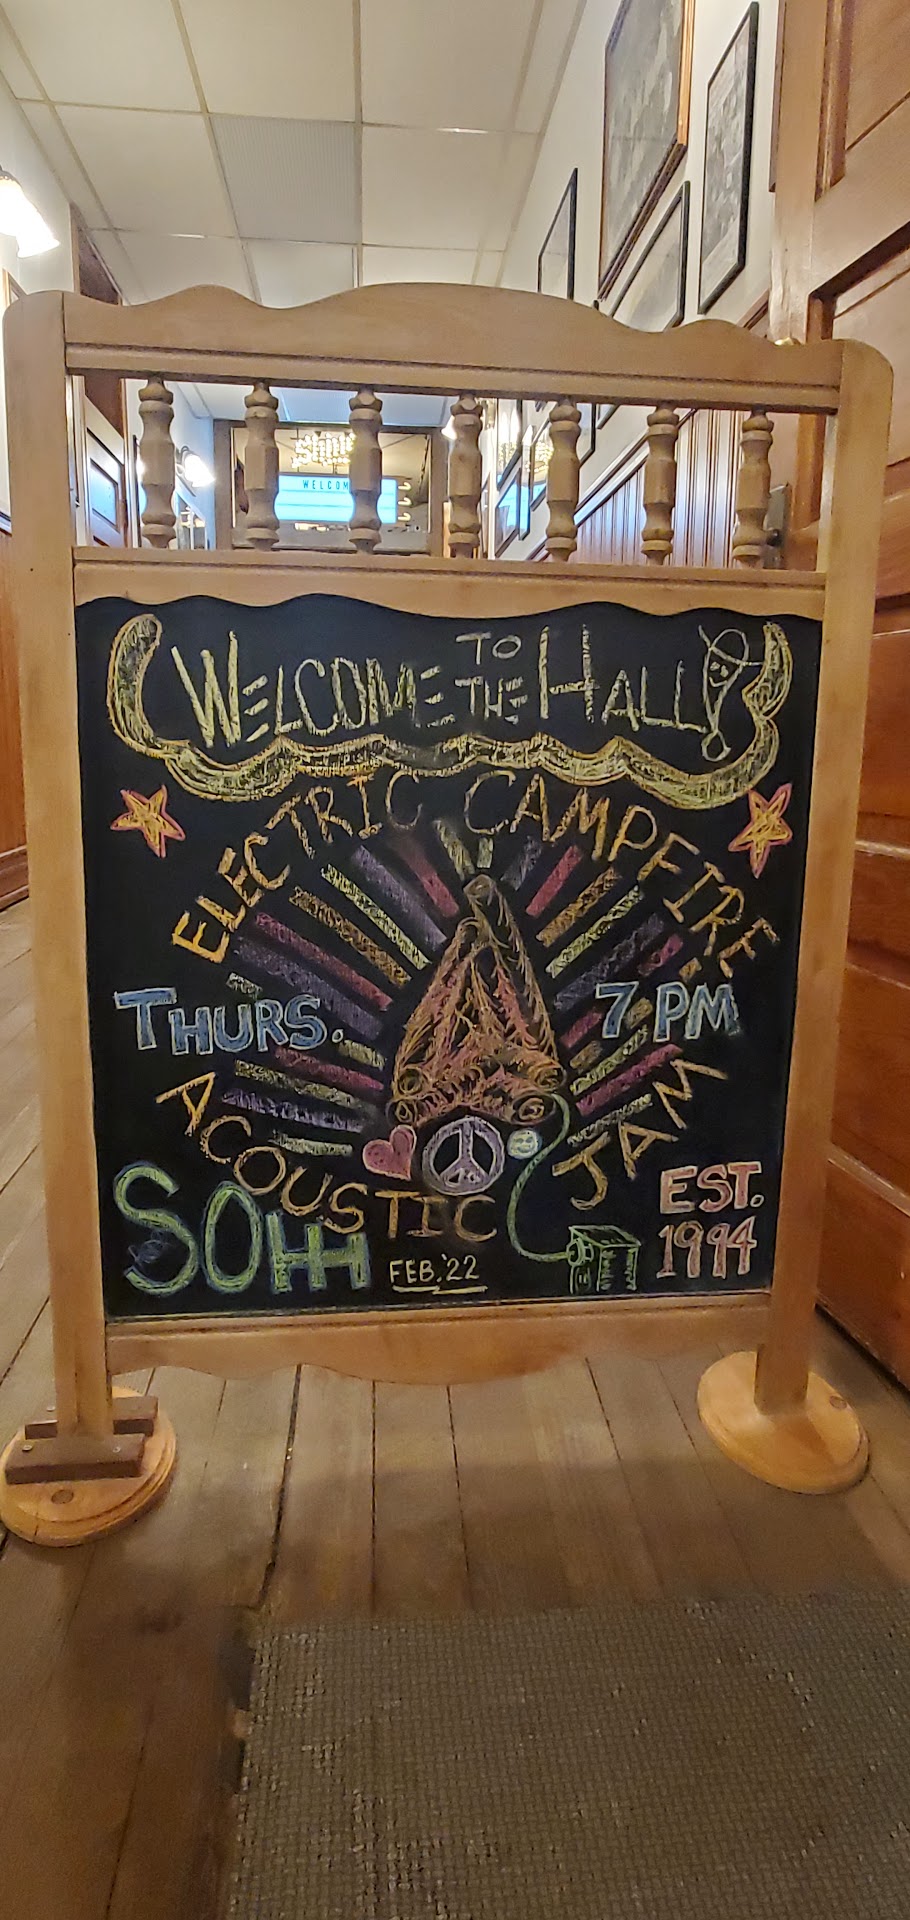 WELCOM
WELCOME TO THE HALL!
ELECTRIC CAMPFIRE
THURS. 7 PM
ACOUSTIC JAM
SOHH
FEB. '22
EST.
1994